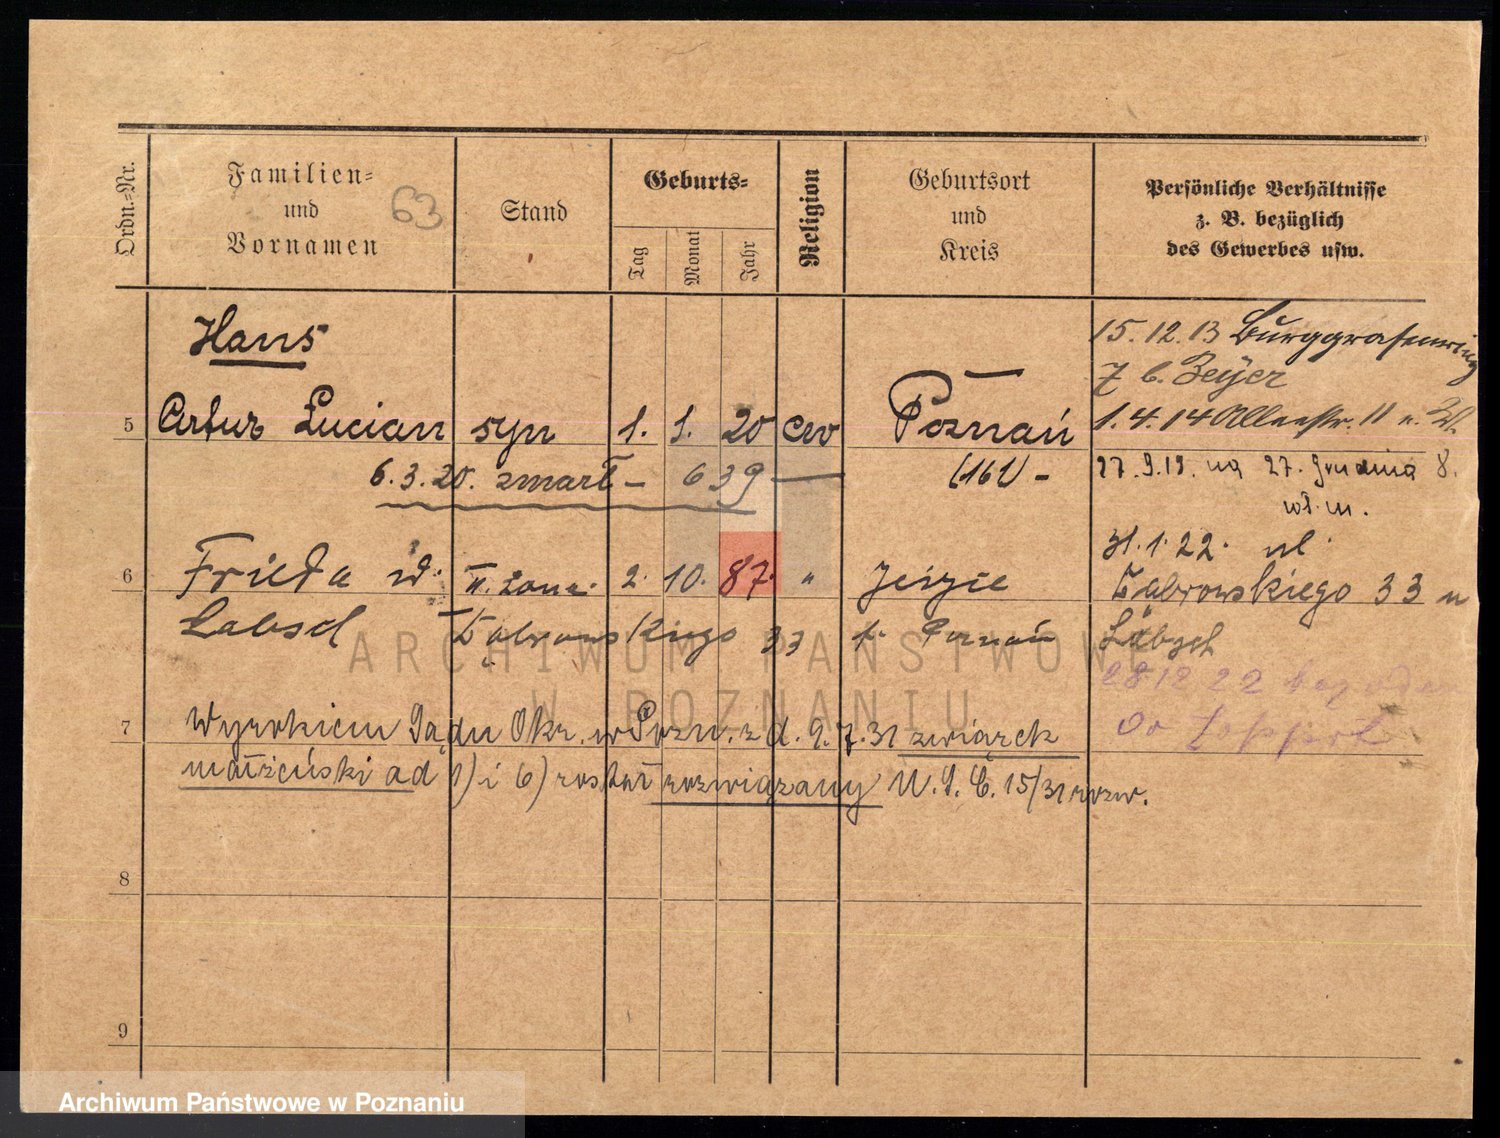 Ordn.-Nr.
Familien-
und
Vornamen
63
Stand
Geburts-
Tag
Monat
Jahr
Religion
Geburtsort
und
Kreis
Persönliche Verhältnisse
z. B. bezüglich
des Gewerbes usw.
Hans
5 Artur Lucian syn 1. 1. 20 ew Poznań
6.3.20. zmarł - 639 - (161) -
15.12.13 Burggrafenring
7 b. Zeijer
1.4.14 Alleestr. 11
27.9.19. na 27. Grudnia 8.
wł. m.
6 Frieda ż. II. żona 2. 10. 87. " Jeżyce
Labsch Dąbrowskiego 33 Poznań
31.1.22. ul.
Dąbrowskiego 33 u
Läbsch
28 12 22
do
7 Wyrokiem Sądu Okr. w Pozn. z d. 9.7.31 związek
małżeński ad 1) i 6) został rozwiązany W. S. C. 15/31 rozw.
8
9
ARCHIWUM PAŃSTWOWE
W POZNANIU
Archiwum Państwowe w Poznaniu